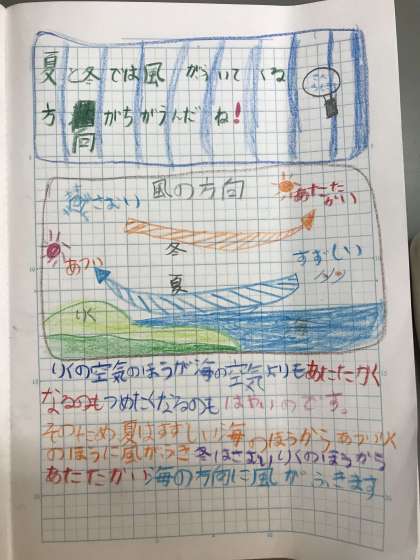 夏と冬では風がういてくる
方向がちがうんだね!
風の方向
さむい
あたたかい
冬
あつい
すずしい
夏
りく
海
りくの空気のほうが海の空気よりもあたたかく
なるのもつめたくなるのもはやいのです。
そのため夏はすずしい海のほうからあついりく
のほうに風がふき冬はさむいりくのほうから
あたたかい海の方向に風がふきます